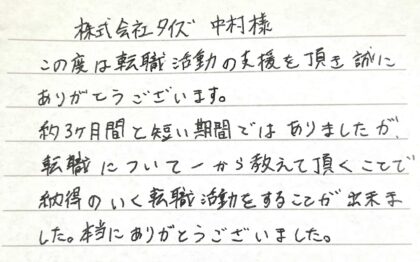 株式会社タイズ 中村様
この度は転職活動の支援を頂き誠に
ありがとうございます。
約3ヶ月間と短い期間ではありましたが、
転職について一から教えて頂くことで
納得のいく転職活動をすることが出来ま
した。本当にありがとうございました。